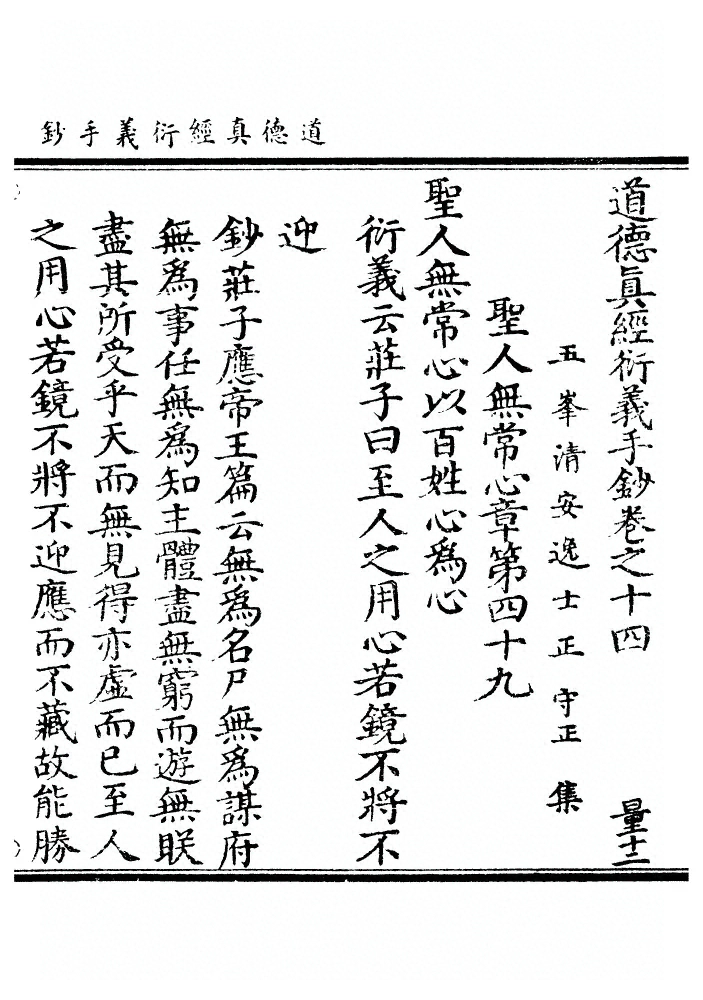 道德真經衍義手鈔
道德眞經衍義手鈔卷之十四 量十二
五峯清安逸士正守正集
聖人無常心章第四十九
聖人無常心以百姓心爲心
衍義云莊子曰至人之用心若鏡不將不
迎
鈔莊子應帝王篇云無爲名尸無爲謀府
無爲事任無爲知主體盡無窮而遊無眹
盡其所受乎天而無見得亦虛而已至人
之用心若鏡不將不迎應而不藏故能勝